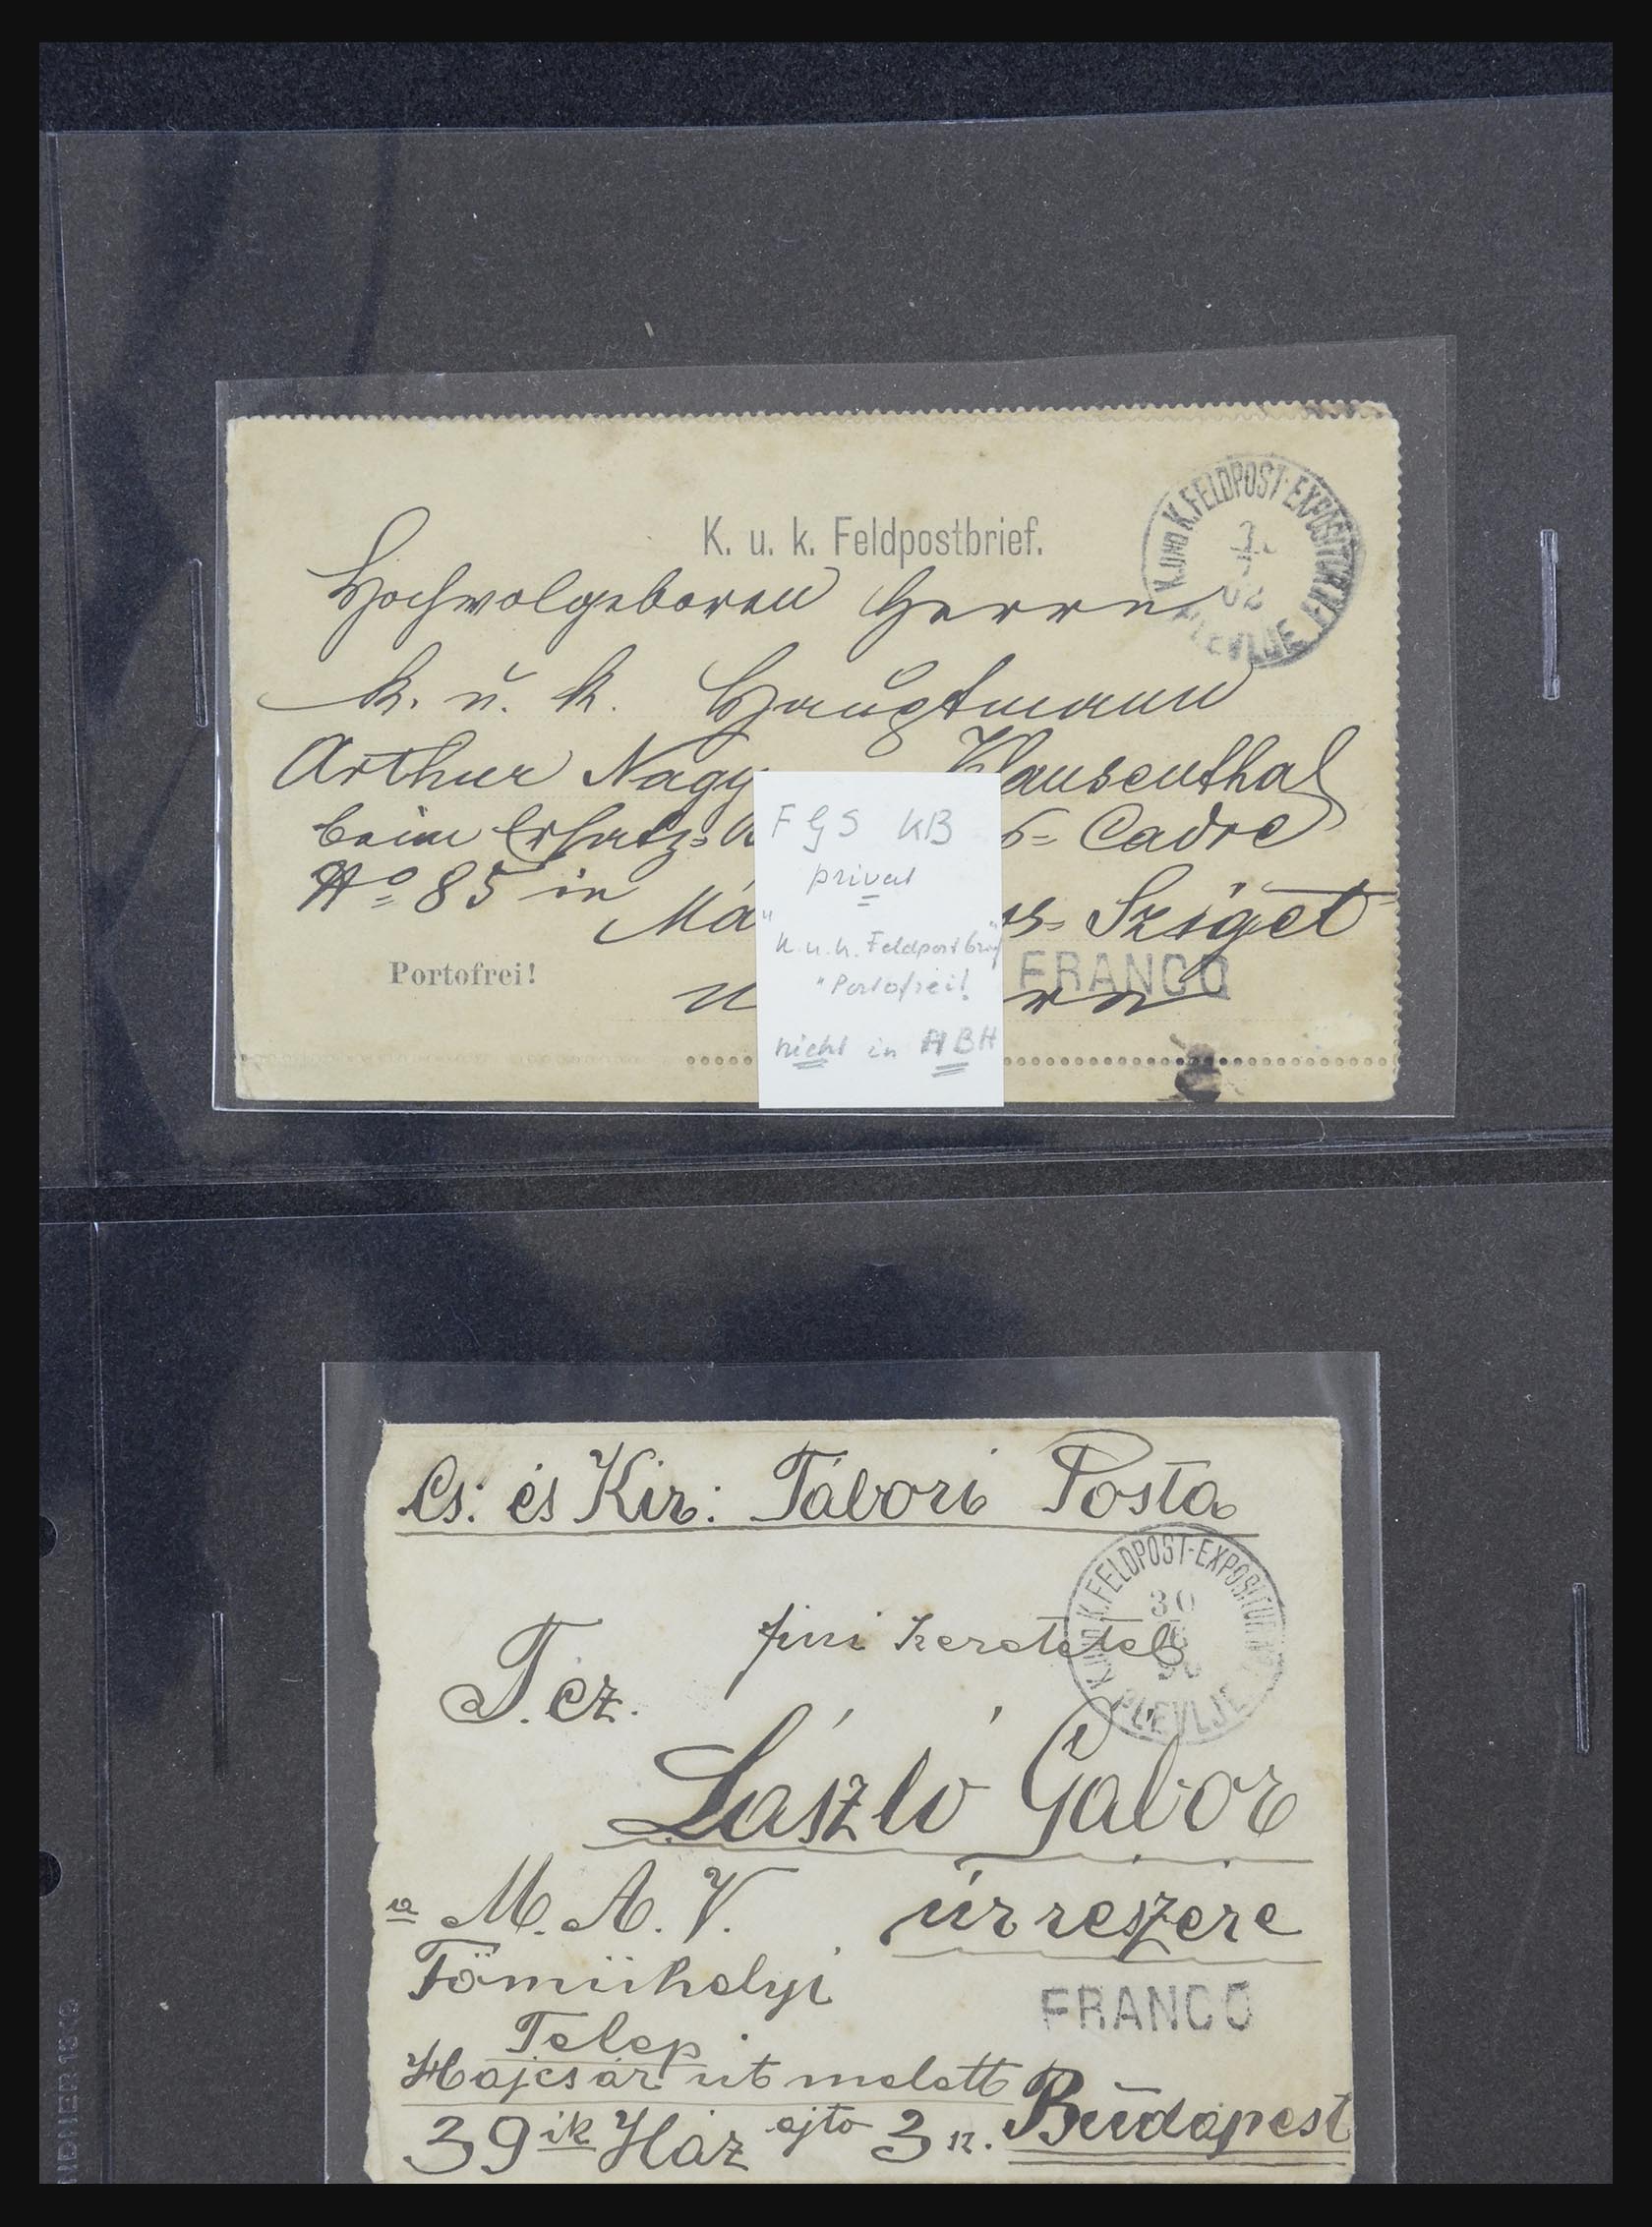 K. u. k. Feldpostbrief.
K. UND K. FELDPOST-EXPOSITUR
02
PLEVLJE
Hochwolgeboren Herrn
k. u. k. Hauptmann
Arthur Nagy Klausenthal
beim Ersatz= Cadre
No 85 in
Sziget
Portofrei!
FRANCO
F G S KB
privat
"K. u. k. Feldpostbrief"
"Portofrei!
nicht in ABH
Cs: és Kir: Tábori Posta
K. UND K. FELDPOST-EXPOSITUR
30
PLEVLJE
T. cz.
László Gábor
a M. A. V. úr reszere
Fömühelyi
FRANCO
Telep.
Hajcsár ut melett
39 ik Ház ajto 3 sz. Budapest